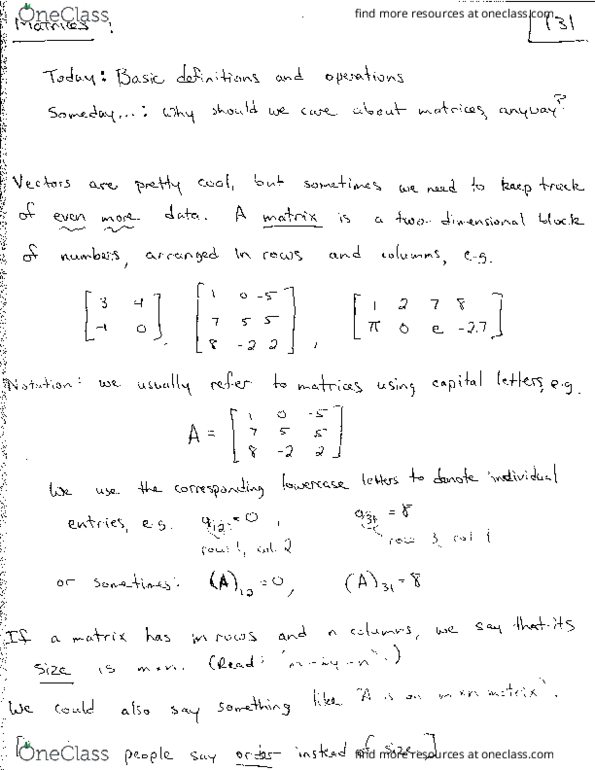 OneClass find more resources at oneclass.com
Matrices : 131
Today: Basic definitions and operations
Someday...: Why should we care about matrices, anyway?
Vectors are pretty cool, but sometimes we need to keep track
of even more data. A matrix is a two-dimensional block
of numbers, arranged in rows and columns, e.g.
[3 4 [1 0 -5 [1 2 7 8
-1 0], 7 5 5 π 0 e -2.7]
8 -2 2],
Notation: we usually refer to matrices using capital letters, e.g.
[1 0 -5
A = 7 5 5
8 -2 2]
We use the corresponding lowercase letters to denote individual
entries, e.g. a12 = 0, a31 = 8
row 1, col. 2 row 3, col 1
or sometimes: (A)12 = 0, (A)31 = 8
If a matrix has m rows and n columns, we say that its
size is m×n. (Read: "m-by-n".)
We could also say something like "A is an m×n matrix".
[ people say order instead of size.]
OneClass find more resources at oneclass.com